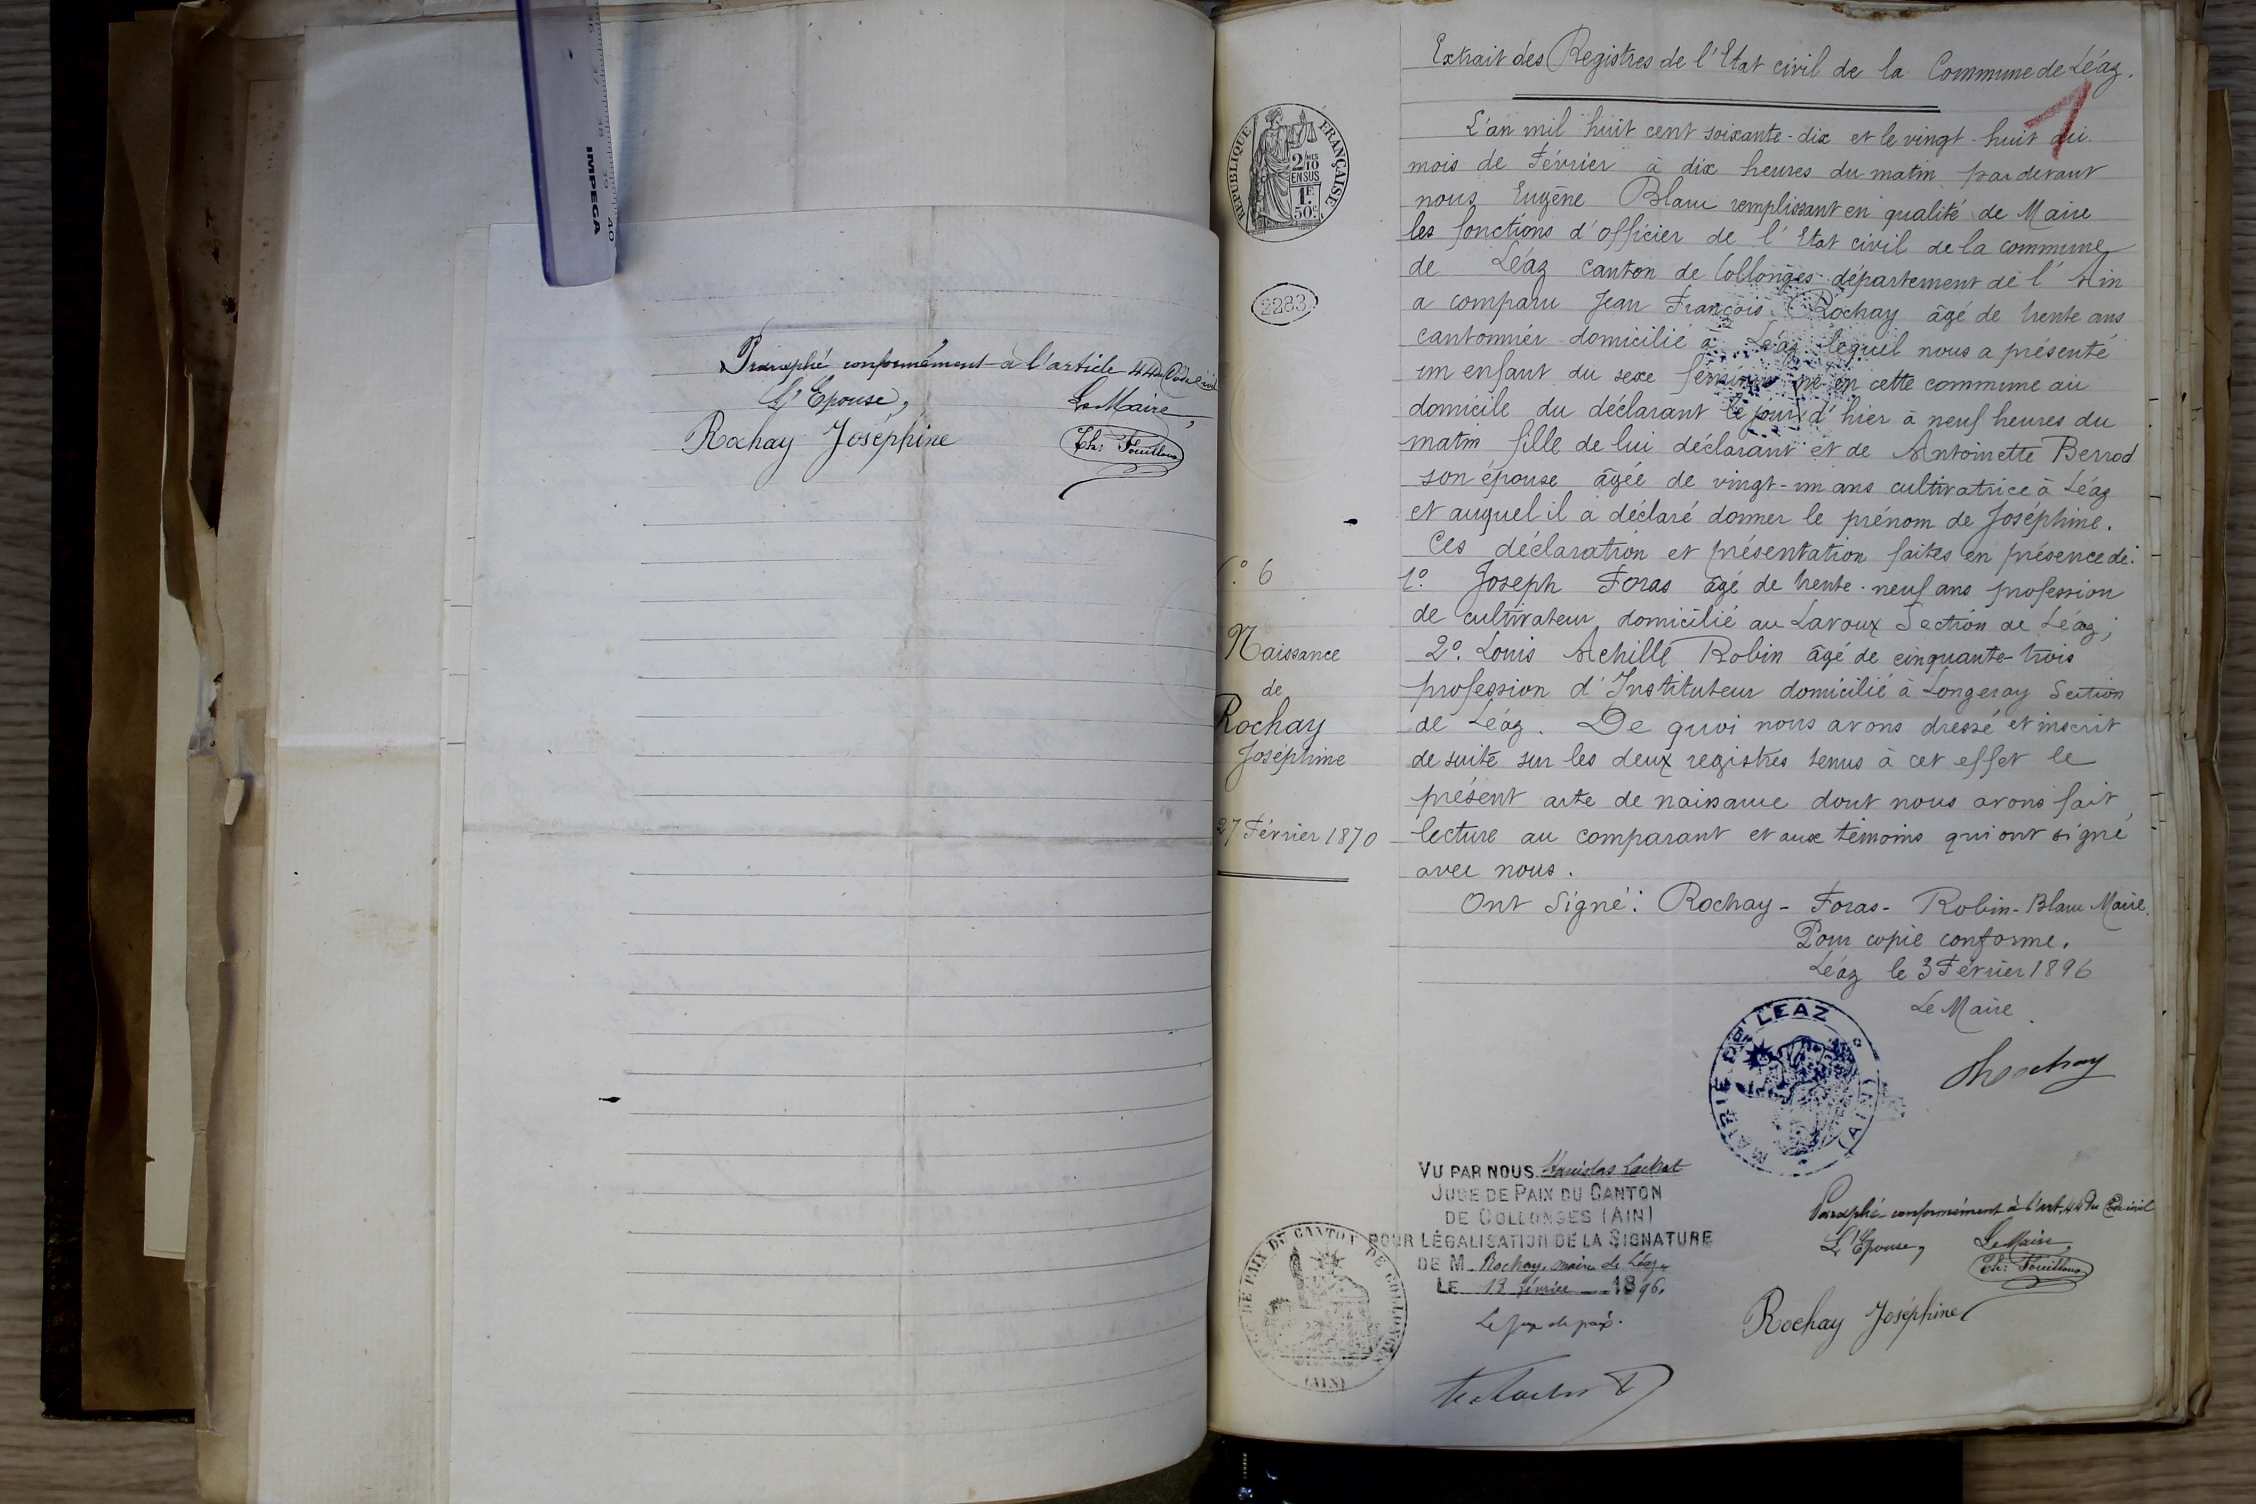 IMPEGA
39
40
Paraphé conformément à l'article 44 du Code civil
L'Epouse,
Le Maire,
Rochay Joséphine
Extrait des Registres de l'Etat civil de la Commune de Léaz.
1
L'an mil huit cent soixante-dix et le vingt-huit du
mois de Février à dix heures du matin par devant
nous Eugène Blanc remplissant en qualité de Maire
les fonctions d'officier de l'Etat civil de la commune
de Léaz canton de Collonges département de l'Ain
a comparu Jean François Rochay âgé de trente ans
cantonnier domicilié à Léaz lequel nous a présenté
un enfant du sexe féminin né en cette commune au
domicile du déclarant le jour d'hier à neuf heures du
matin fille de lui déclarant et de Antoinette Berrod
son épouse âgée de vingt-un ans cultivatrice à Léaz
et auquel il a déclaré donner le prénom de Joséphine.
Ces déclaration et présentation faites en présence de:
1º. Joseph Foras âgé de trente-neuf ans profession
de cultivateur domicilié au Lavoux Section de Léaz;
2º. Louis Achille Robin âgé de cinquante-trois
profession d'Instituteur domicilié à Longeray Section
de Léaz. De quoi nous avons dressé et inscrit
de suite sur les deux registres tenus à cet effet le
présent acte de naissance dont nous avons fait
lecture au comparant et aux témoins qui ont signé
avec nous.
Ont Signé: Rochay - Foras - Robin - Blanc Maire.
Pour copie conforme.
Léaz le 3 Février 1896
Le Maire
Rochay
REPUBLIQUE FRANÇAISE
2/10
EN SUS
1F
50c
2283
º 6
Naissance
de
Rochay
Joséphine
27 Février 1870
MAIRIE DE LEAZ (AIN)
VU PAR NOUS Stanislas Lachat
JUGE DE PAIX DU CANTON
DE COLLONGES (AIN)
POUR LÉGALISATION DE LA SIGNATURE
DE M. Rochay, maire de Léaz
LE 13 février 1896.
Le juge de paix.
DE PAIX DU CANTON DE COLLONGES
(AIN)
Paraphé conformément à l'art. 44 du Code civil
L'Epouse,
Le Maire,
Rochay Joséphine